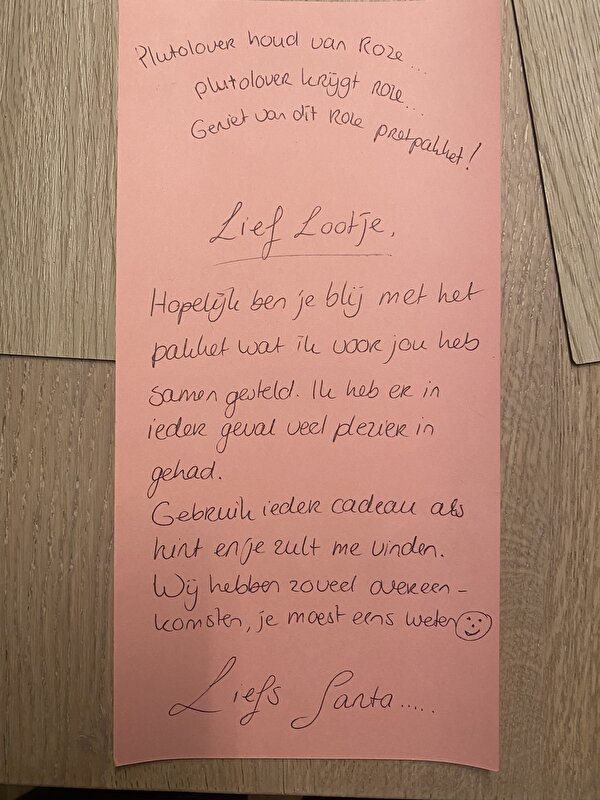 Plutolover houd van Roze...
plutolover krijgt roze...
Geniet van dit Roze pretpakket!
Lief Lootje,
Hopelijk ben je blij met het
pakket wat ik voor jou heb
samen gesteld. Ik heb er in
ieder geval veel plezier in
gehad.
Gebruik ieder cadeau als
hint en je zult me vinden.
Wij hebben zoveel overeen-
komsten, je moest eens weten
Liefs Santa.....